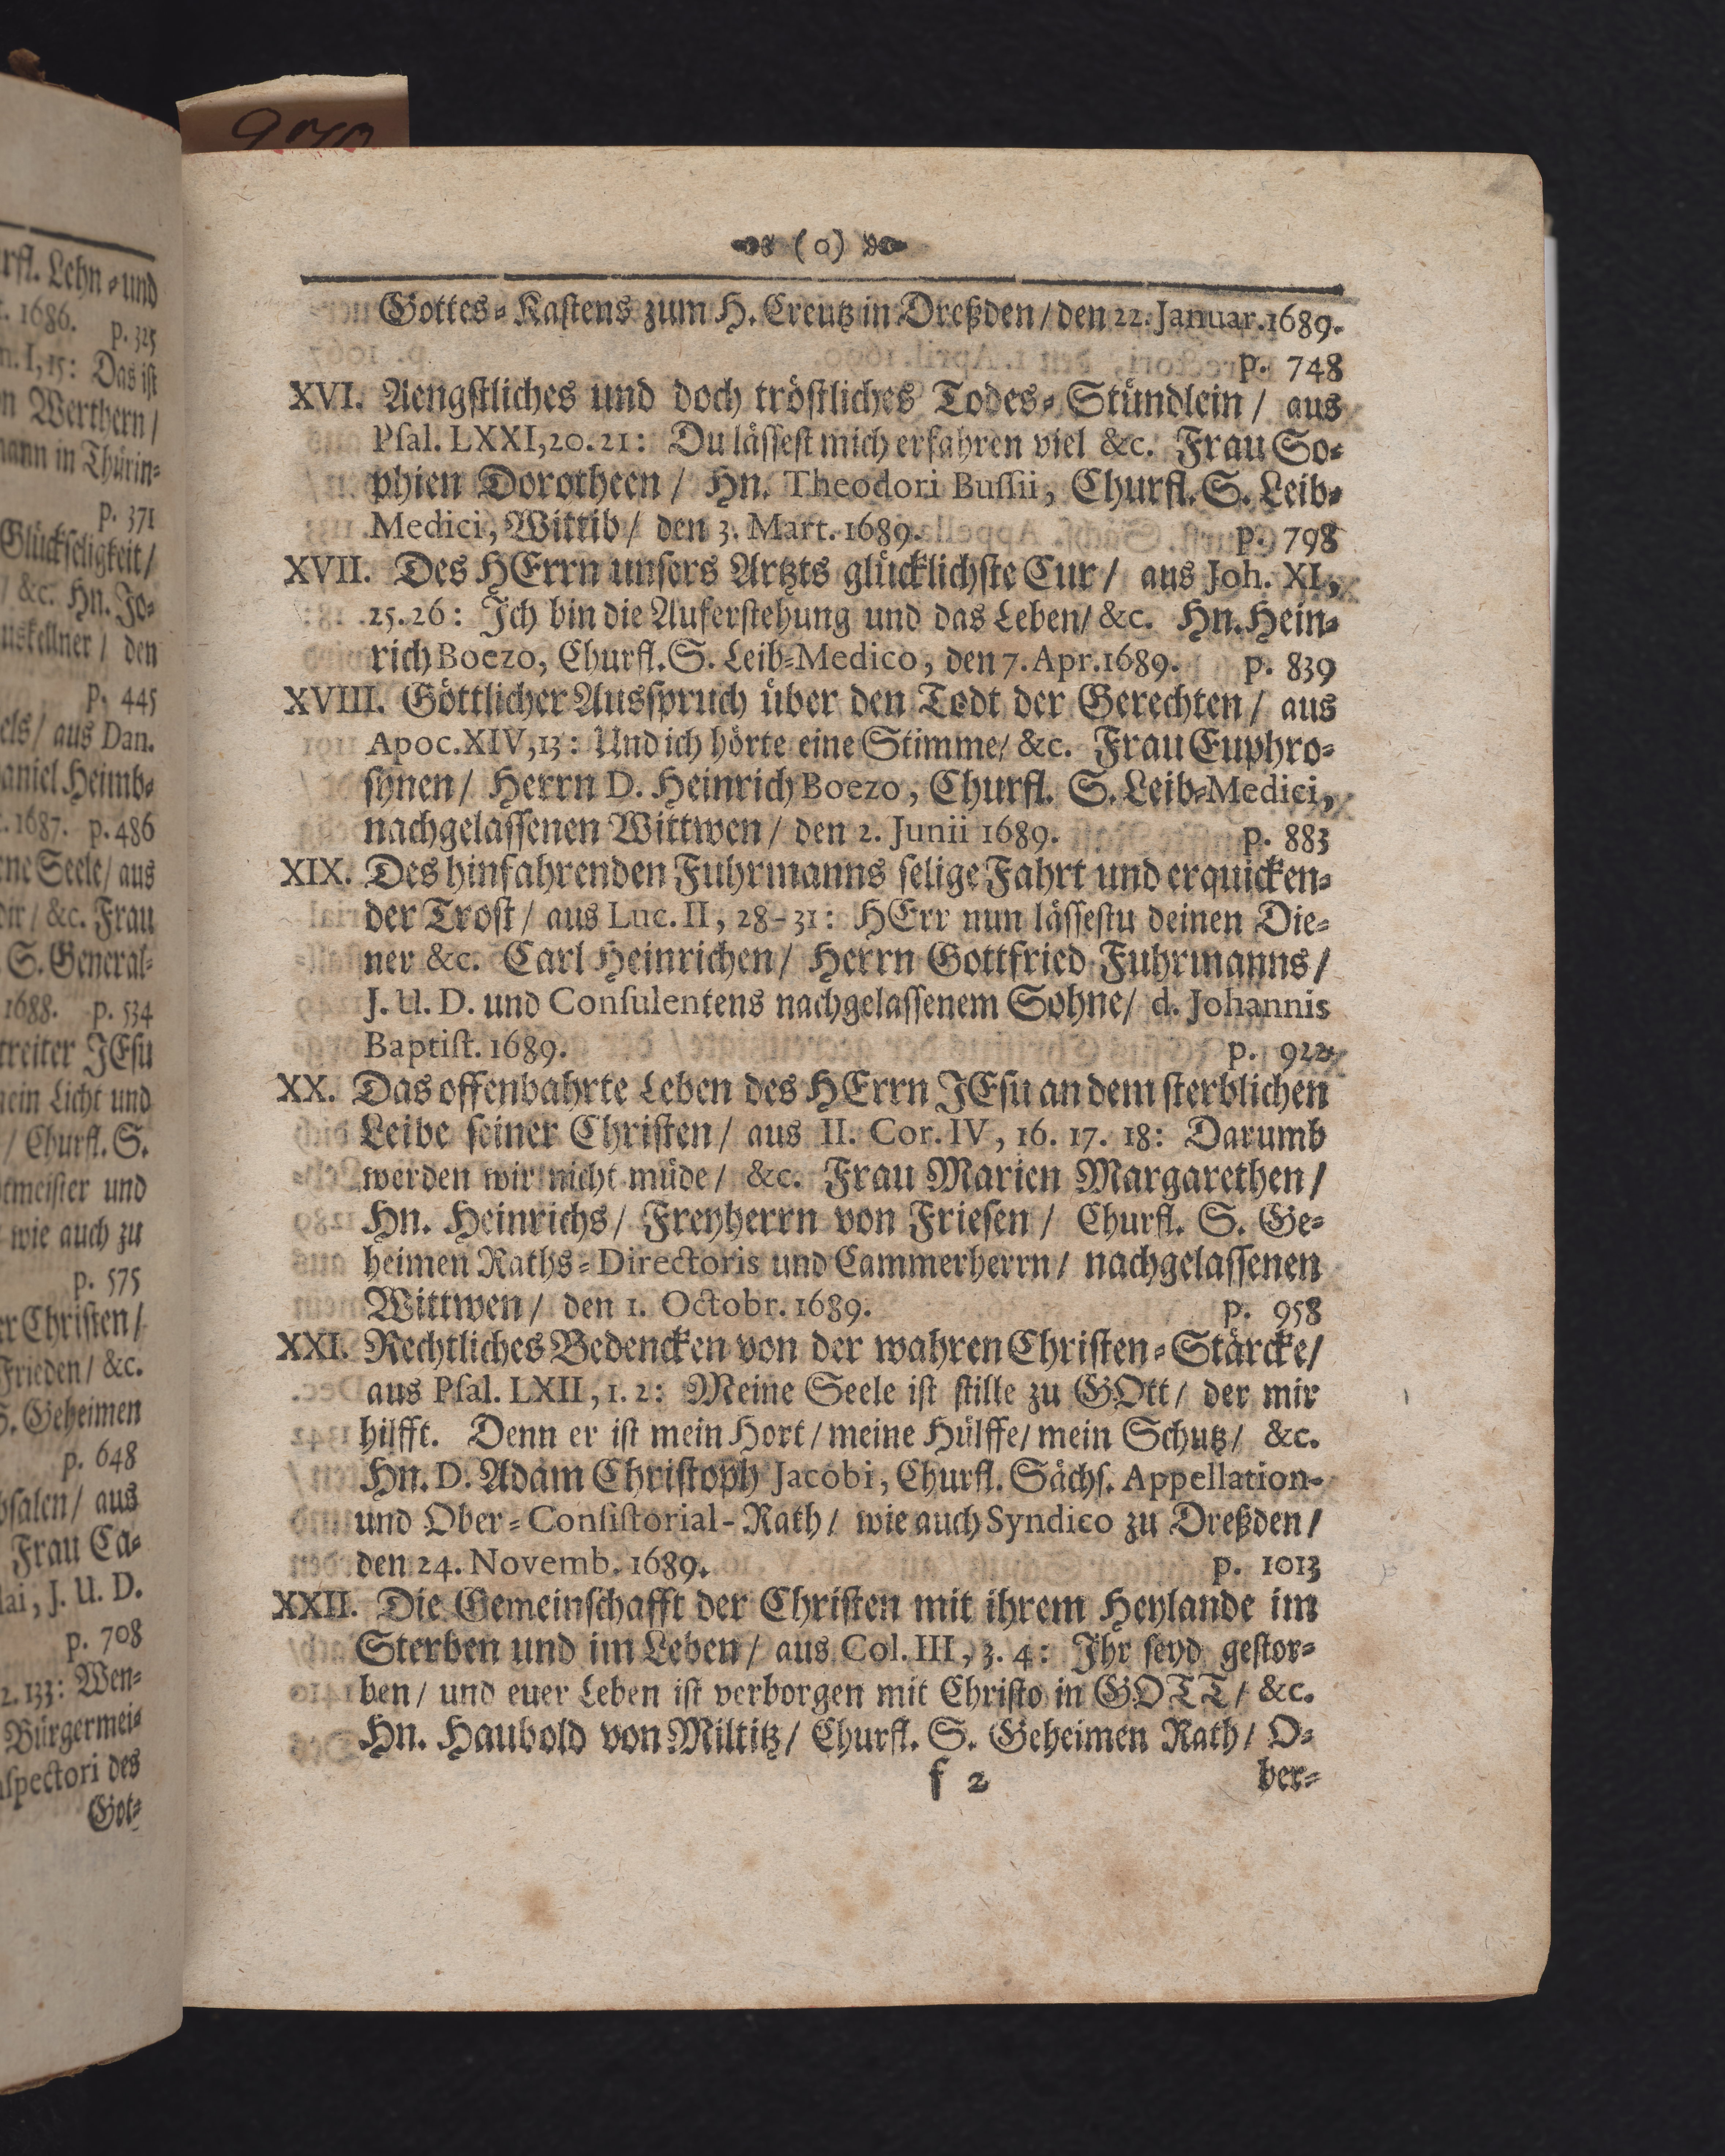 970
rfl. Lehn-und
t. 1686. p. 325
n. I, 15: Das ist
n Werthern/
mann in Thürin-
p. 371
Glückseligkeit/
/ &c. Hn. Jo-
uskellner / den
p. 445
els/ aus Dan.
aniel Heimb-
t. 1687. p. 486
ene Seele/ aus
dir/ &c. Frau
S. General-
1688. p. 534
treiter JEsu
nein Licht und
/ Churfl. S.
tmeister und
wie auch zu
p. 575
er Christen/
Frieden/ &c.
S. Geheimen
p. 648
bsalen/ aus
Frau Ca-
lai, J. U. D.
p. 708
2. 133: Wen-
Bürgermei-
nspectori des
Got-
(0)
Gottes-Kastens zum H. Creutz in Dreßden/ den 22. Januar. 1689.
p. 748
XVI. Aengstliches und doch tröstliches Todes-Stündlein/ aus
Psal. LXXI, 20. 21: Du lässest mich erfahren viel &c. Frau So-
phien Dorotheen/ Hn. Theodori Bussii, Churfl. S. Leib-
Medici, Wittib/ den 3. Mart. 1689. p. 798
XVII. Des HErrn unsers Artzts glücklichste Cur/ aus Joh. XI,
25. 26: Ich bin die Auferstehung und das Leben/ &c. Hn. Hein-
rich Boezo, Churfl. S. Leib-Medico, den 7. Apr. 1689. p. 839
XVIII. Göttlicher Ausspruch über den Todt der Gerechten/ aus
Apoc. XIV, 13: Und ich hörte eine Stimme/ &c. Frau Euphro-
synen/ Herrn D. Heinrich Boezo, Churfl. S. Leib-Medici,
nachgelassenen Wittwen/ den 2. Junii 1689. p. 883
XIX. Des hinfahrenden Fuhrmanns selige Fahrt und erquicken-
der Trost/ aus Luc. II, 28-31: HErr nun lässestu deinen Die-
ner &c. Carl Heinrichen/ Herrn Gottfried Fuhrmanns/
J. U. D. und Consulentens nachgelassenem Sohne/ d. Johannis
Baptist. 1689. p. 922
XX. Das offenbahrte Leben des HErrn JEsu an dem sterblichen
Leibe seiner Christen/ aus II. Cor. IV, 16. 17. 18: Darumb
werden wir nicht müde/ &c. Frau Marien Margarethen/
Hn. Heinrichs/ Freyherrn von Friesen/ Churfl. S. Ge-
heimen Raths-Directoris und Cammerherrn/ nachgelassenen
Wittwen/ den 1. Octobr. 1689. p. 958
XXI. Rechtliches Bedencken von der wahren Christen-Stärcke/
aus Psal. LXII, 1. 2: Meine Seele ist stille zu GOtt/ der mir
hilfft. Denn er ist mein Hort/ meine Hülffe/ mein Schutz/ &c.
Hn. D. Adam Christoph Jacobi, Churfl. Sächs. Appellation-
und Ober-Consistorial-Rath/ wie auch Syndico zu Dreßden/
den 24. Novemb. 1689. p. 1013
XXII. Die Gemeinschafft der Christen mit ihrem Heylande im
Sterben und im Leben/ aus Col. III, 3. 4: Ihr seyd gestor-
ben/ und euer Leben ist verborgen mit Christo in GOTT/ &c.
Hn. Haubold von Miltitz/ Churfl. S. Geheimen Rath/ O-
f 2 ber-